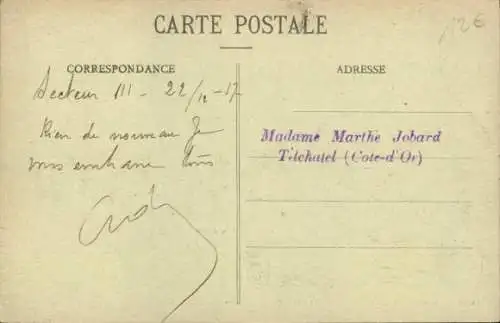 CARTE POSTALE
12€
CORRESPONDANCE
ADRESSE
Secteur III - 22/12-17
Rien de nouveau Je
vous embrasse tous
Madame Marthe Jobard
Tilchatel (Cote-d'Or)